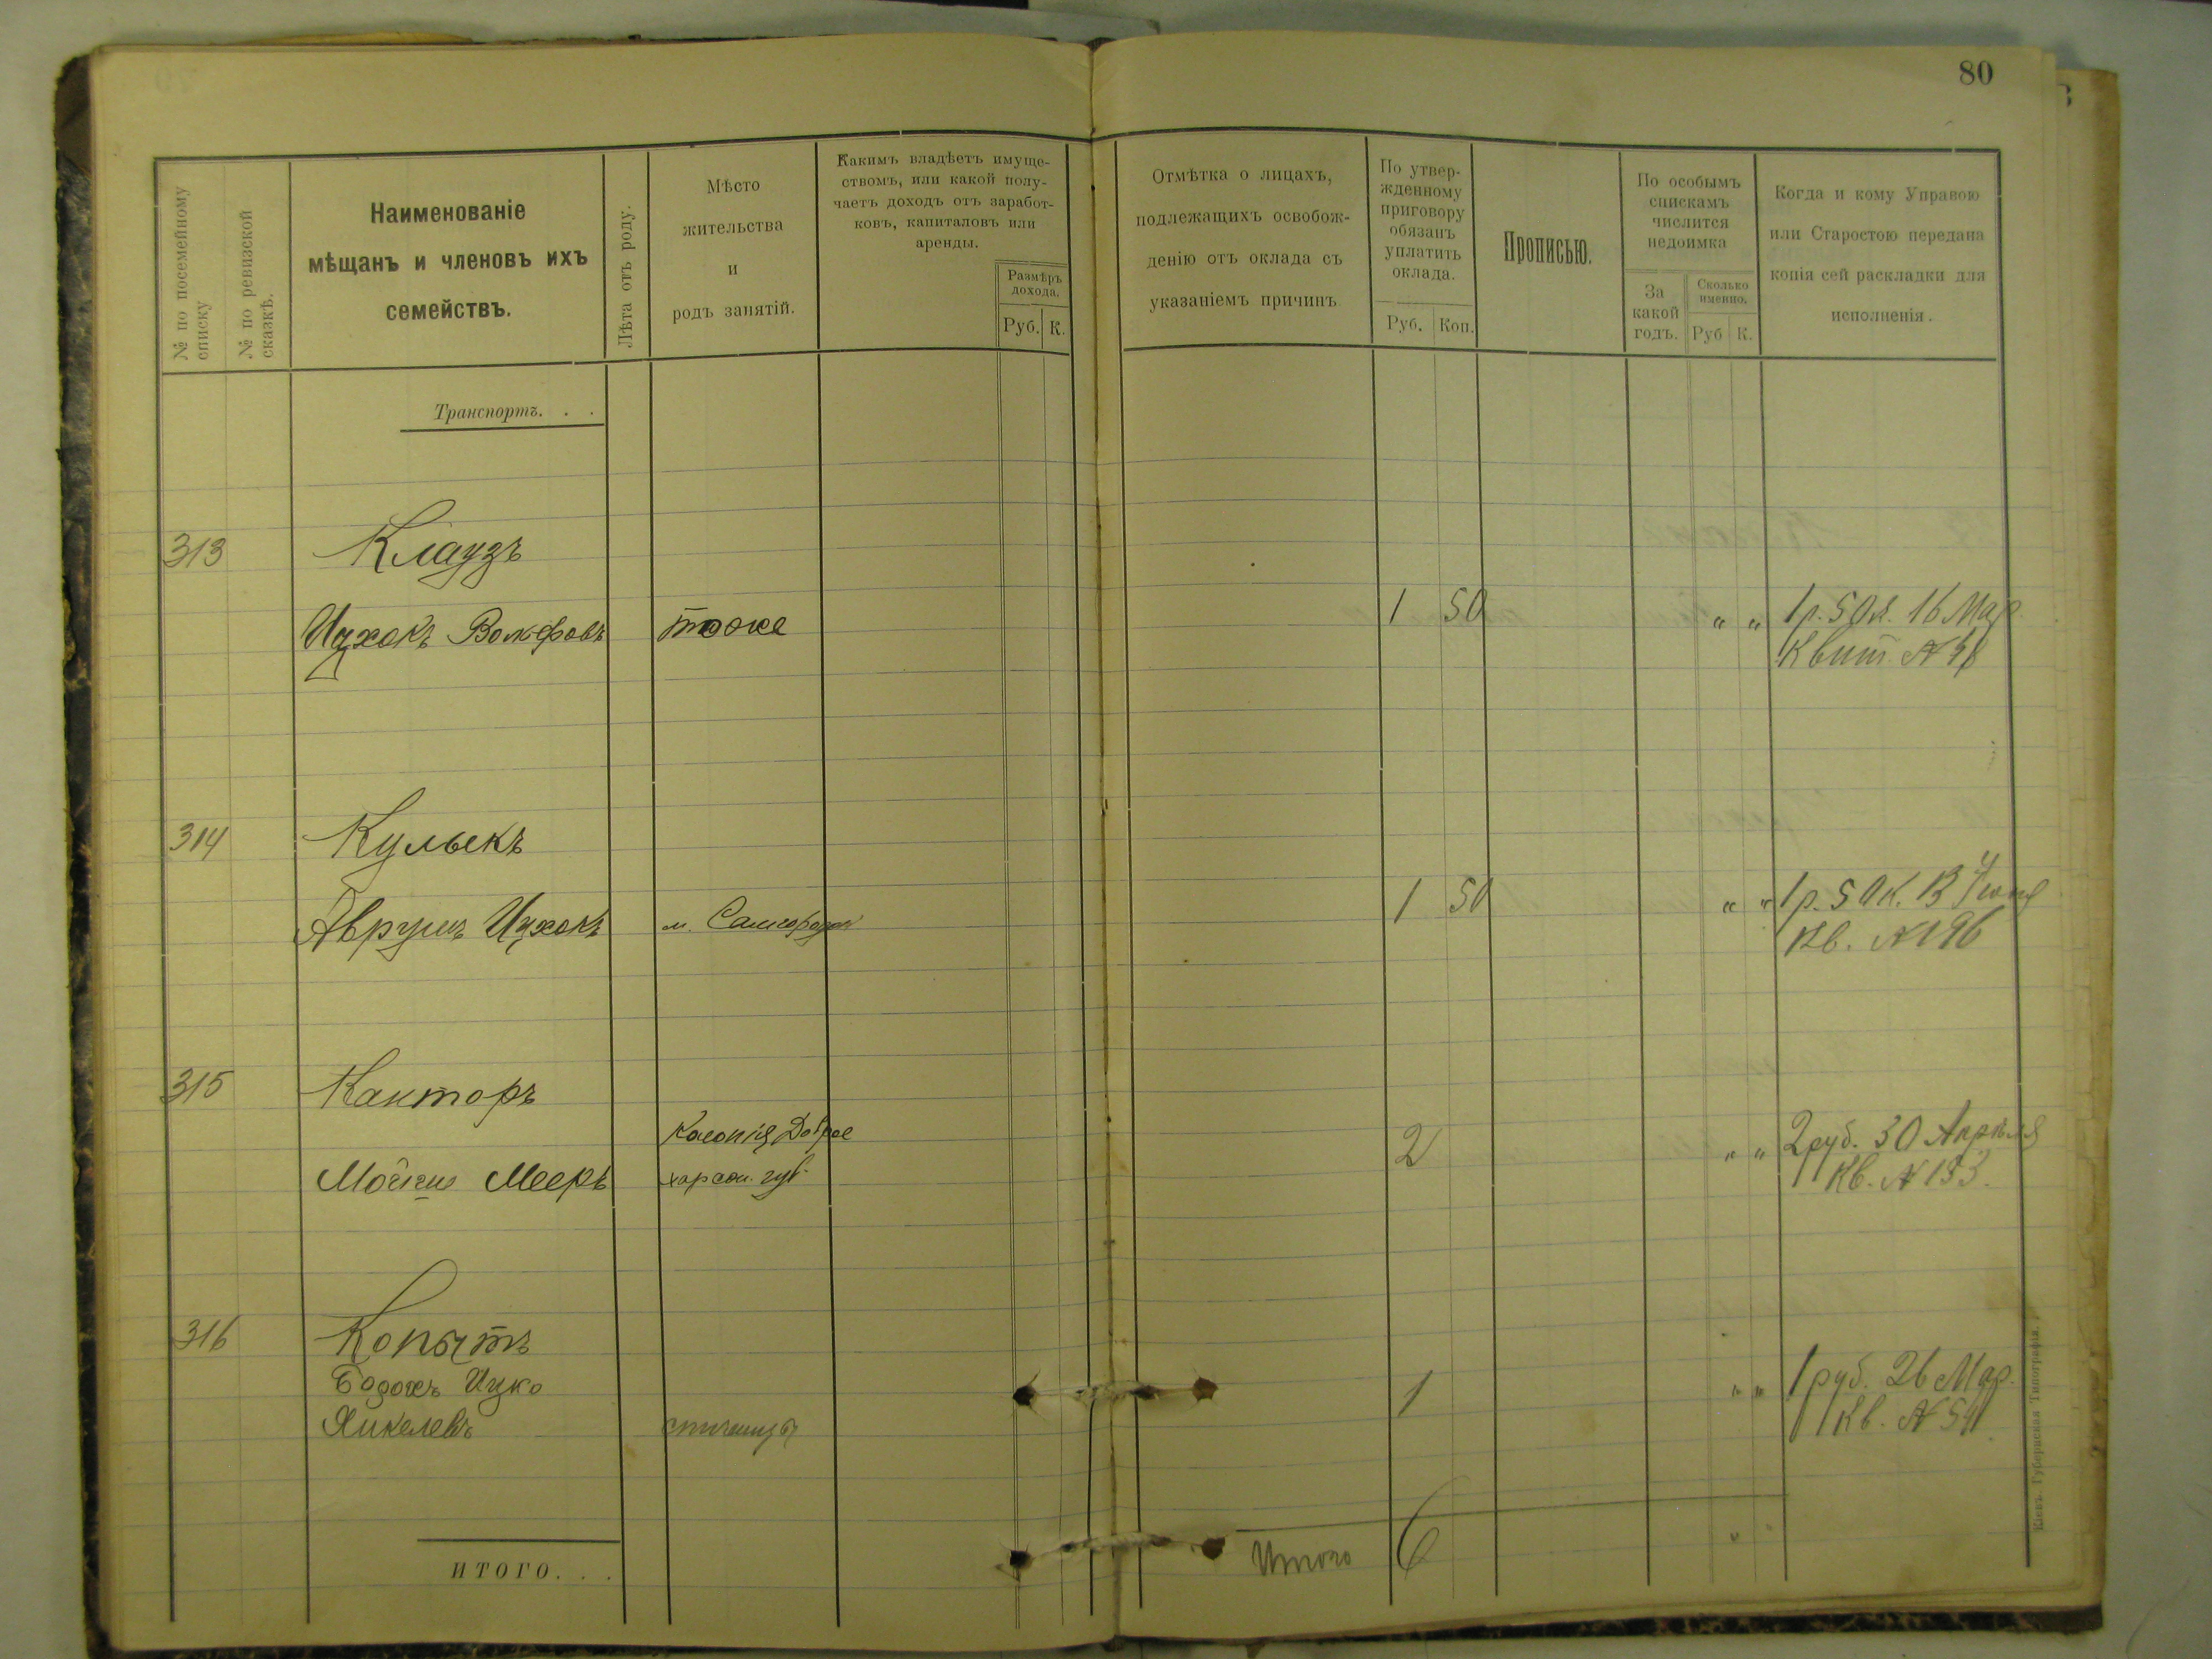 80
№ по посемейному списку
№ по ревизской сказкѣ.
Наименованіе
мѣщанъ и членовъ ихъ
семействъ.
Лѣта отъ роду.
Мѣсто
жительства
и
родъ занятій.
Какимъ владѣетъ имуще-
ствомъ, или какой полу-
чаетъ доходъ отъ заработ-
ковъ, капиталовъ или
аренды.
Размѣръ
дохода.
Руб. К.
Отмѣтка о лицахъ,
подлежащихъ освобож-
денію отъ оклада съ
указаніемъ причинъ
По утвер-
жденному
приговору
обязанъ
уплатить
оклада.
Руб. Коп.
Прописью.
По особымъ
спискамъ
числится
недоимка
За
какой
годъ.
Сколько
именно.
Руб К.
Когда и кому Управою
или Старостою передана
копія сей раскладки для
исполненія.
Транспортъ. . .
313 Клаузъ
Ицхокъ Волфовъ тоже 1 50 " " 1р. 50к. 16 Мар.
Квит. №
314 Кульекъ
Аврумъ Ицхокъ м. Самгородок 1 50 " " 1р. 50к. 13 Июня
Кв. № 196
315 Канторъ
Колонія Доброе
Мойше Мееръ херсон. губ. 2 " " 2 руб. 30 Апрѣля
Кв. № 133.
316 Копытъ
Ицко 1 " " 1 руб. 26 Мар.
Янкелевъ Кв. № 54
ИТОГО. . .
Итого 6 "
Кіевъ. Губернская Типографія.